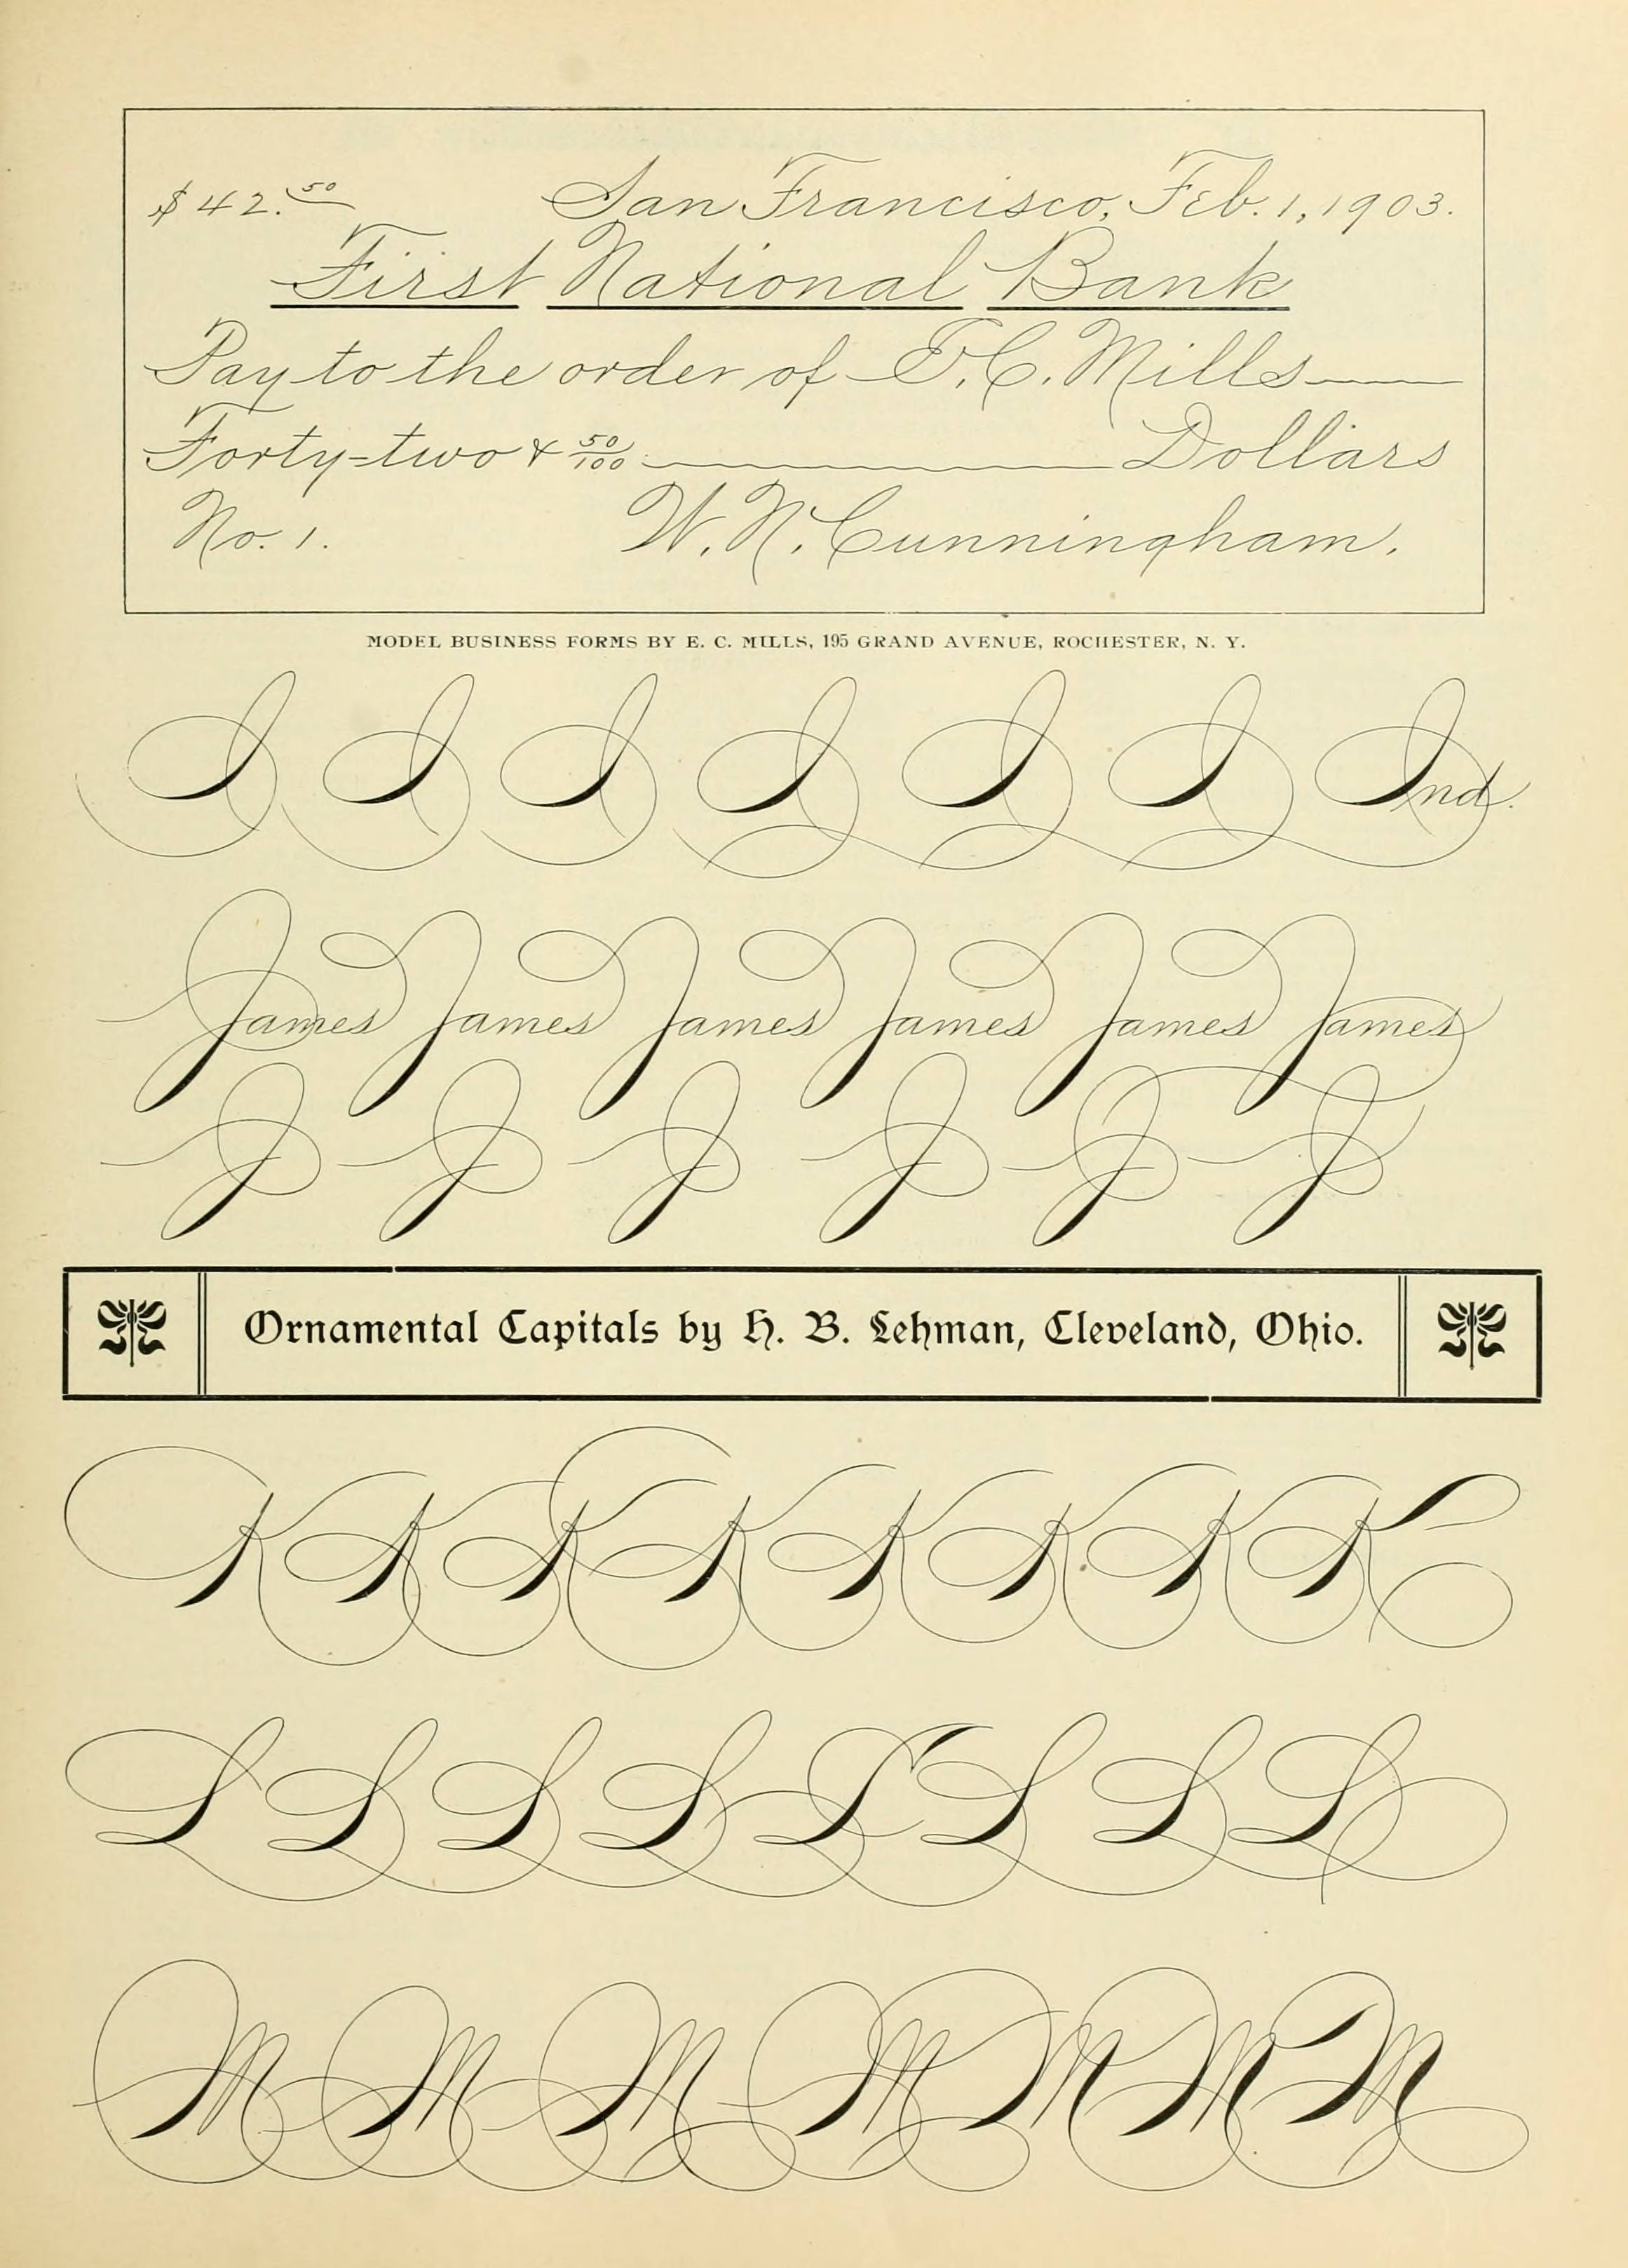 $42.50 San Francisco, Feb. 1, 1903.
First National Bank
Pay to the order of E.C. Mills
Forty-two & 50/100 Dollars
No. 1. W. N. Cunningham.
MODEL BUSINESS FORMS BY E. C. MILLS, 195 GRAND AVENUE, ROCHESTER, N. Y.
I I I I I I Ind.
James James James James James James
J J J J J J
Ornamental Capitals by H. B. Lehman, Cleveland, Ohio.
K K K K K K K K
L L L L L L L L
M M M M M M M